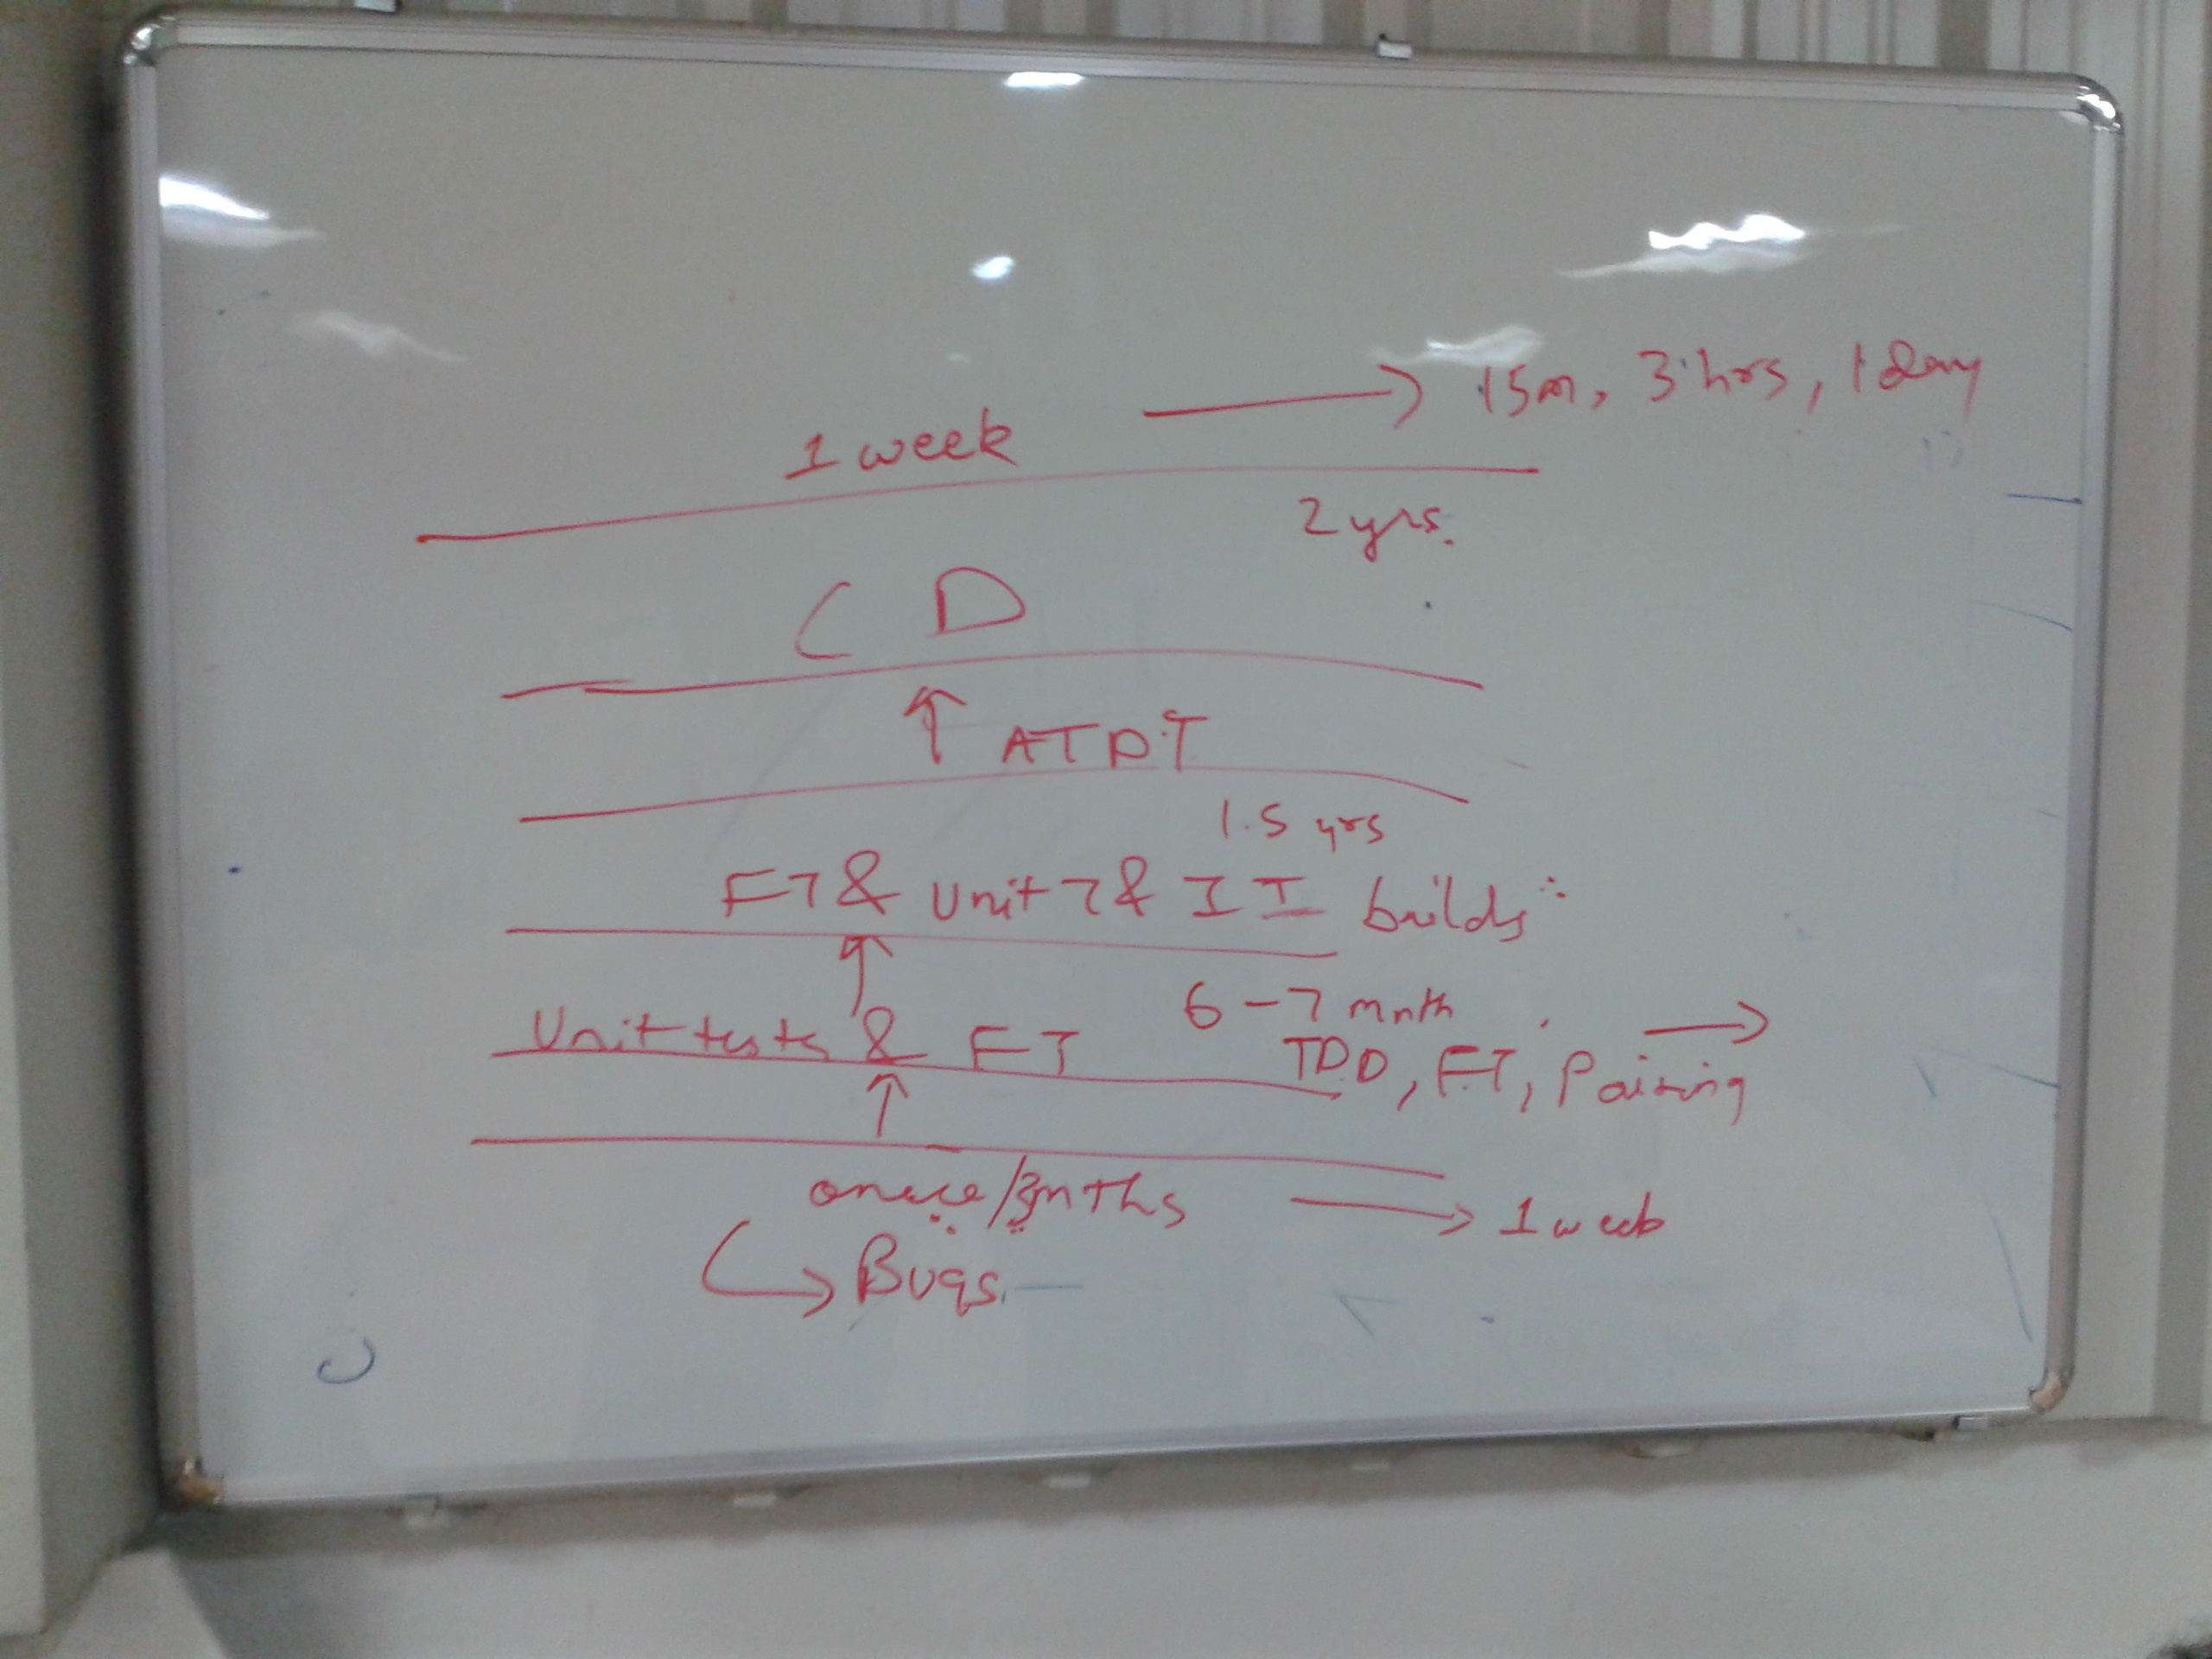 1 week → 15m, 3 hrs, 1 day
2 yrs.
C D
↑ ATDT
1.5 yrs
FT & Unit T & II builds
6-7 mnth
Unit tests & FT TDD, FT, Pairing →
once/3mths → 1 week
↳ Bugs.